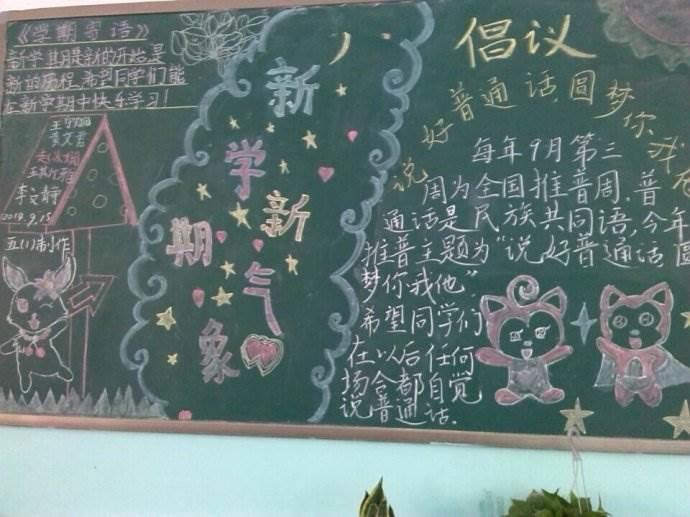 《学期寄语》
新学期是新的开始是
新的历程,希望同学们能
在新学期中快乐学习!
李文静
2014.9.15
五(1)制作
新学期
新气象
倡议
说好普通话,圆梦你我
每年9月第三
周为全国推普周,普
通话是民族共同语,今年
推普主题为"说好普通话,圆
梦你我他"
希望同学们
在以后任何
场合都自觉
说普通话.